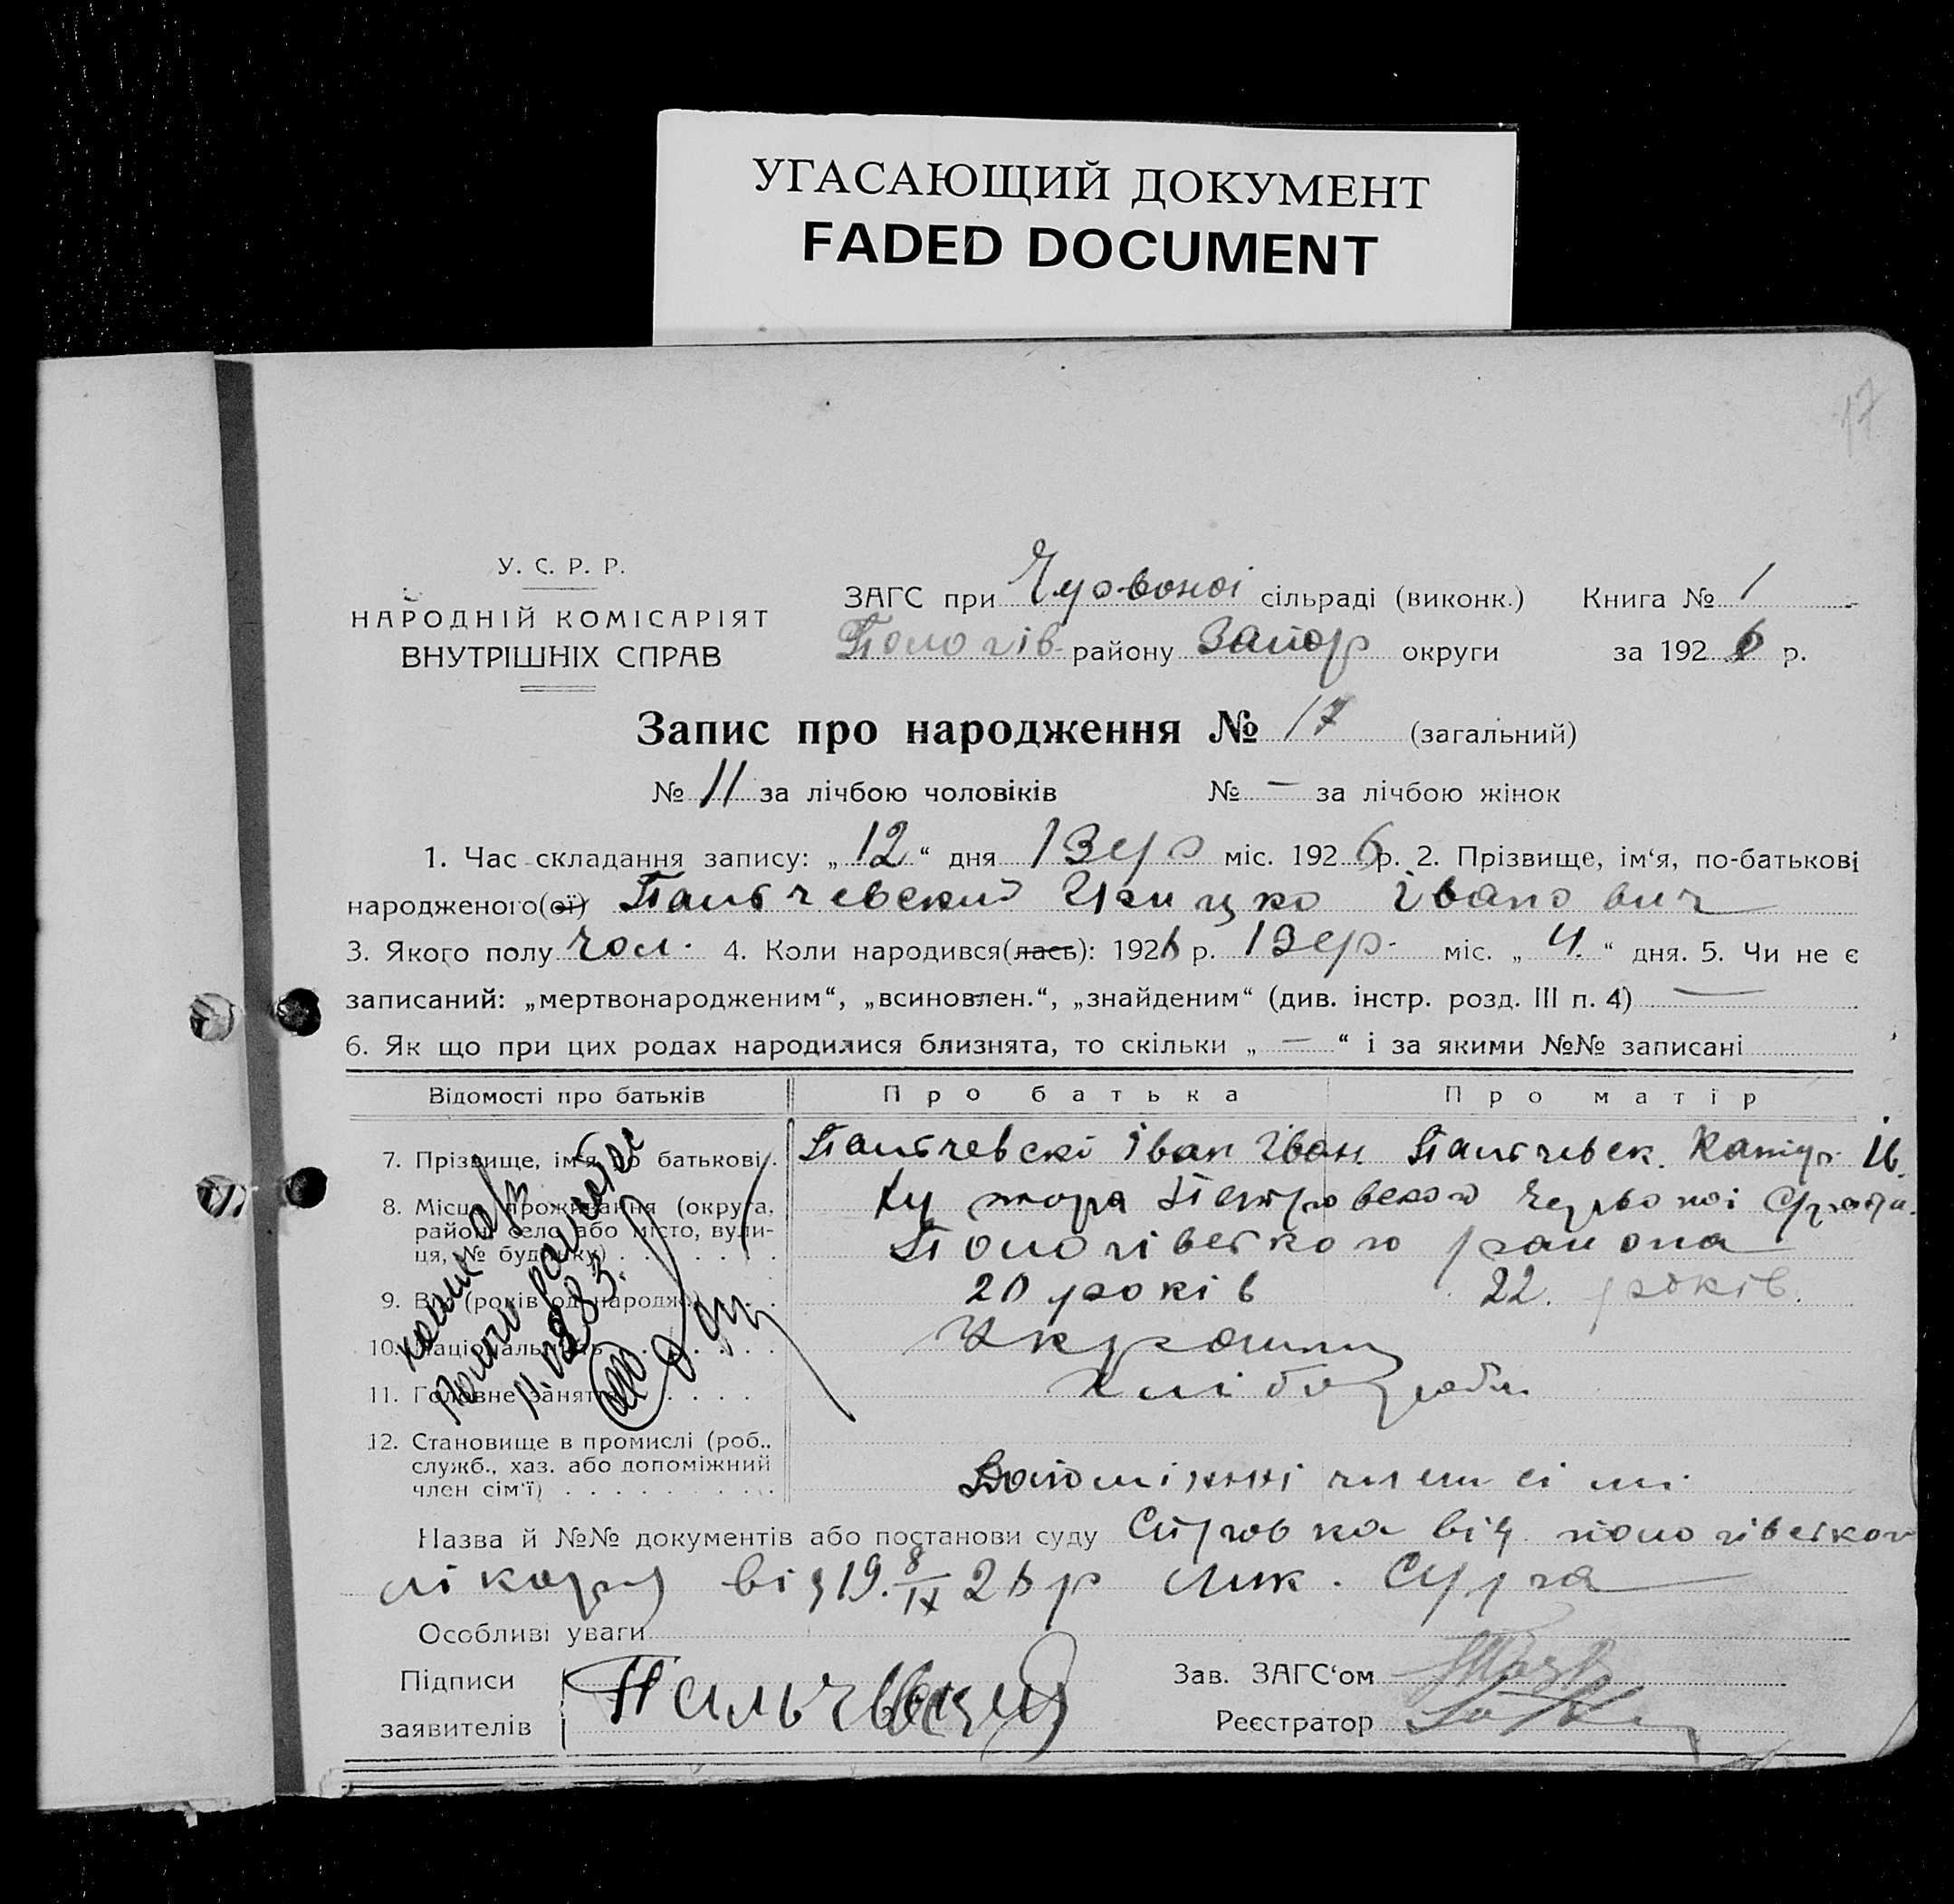 УГАСАЮЩИЙ ДОКУМЕНТ
FADED DOCUMENT
17
У. С. Р. Р.
НАРОДНІЙ КОМІСАРІЯТ
ВНУТРІШНІХ СПРАВ
ЗАГС при Червоної сільраді (виконк.) Книга № 1
Пологів району Запор округи за 1926 р.
Запис про народження № 17 (загальний)
№ 11 за лічбою чоловіків № — за лічбою жінок
1. Час складання запису: „12“ дня Вер міс. 1926 р. 2. Прізвище, ім‘я, по-батькові
народженого(ої) Пальчевский Івано вич
3. Якого полу чол. 4. Коли народився(лась): 1926 р. Вер. міс. „4.“ дня. 5. Чи не є
записаний: „мертвонародженим“, „всиновлен.“, „знайденим“ (див. інстр. розд. III п. 4) —
6. Як що при цих родах народилися близнята, то скільки „—“ і за якими №№ записані
Відомості про батьків Про батька Про матір
7. Прізвище, ім‘я по батькові. Пальчевскі Іван Іван Пальчевск. Ів.
8. Місце проживання (округа, район, село або місто, вули- ця, № будинку) Хутора Петровского Червоної
Пологівського района
9. Вік (років од народж.) 20 років 22. років.
10. Національність Украинц
11. Головне заняття Хлібороби
12. Становище в промислі (роб.,
служб., хаз. або допоміжний
член сім‘ї) Допоміжні член сімї
Назва й №№ документів або постанови суду Справка від пологівского
лікаря від 19. 8/IX 26 р
Особливі уваги
Підписи
заявителів Пальчевский
Зав. ЗАГС‘ом
Реєстратор